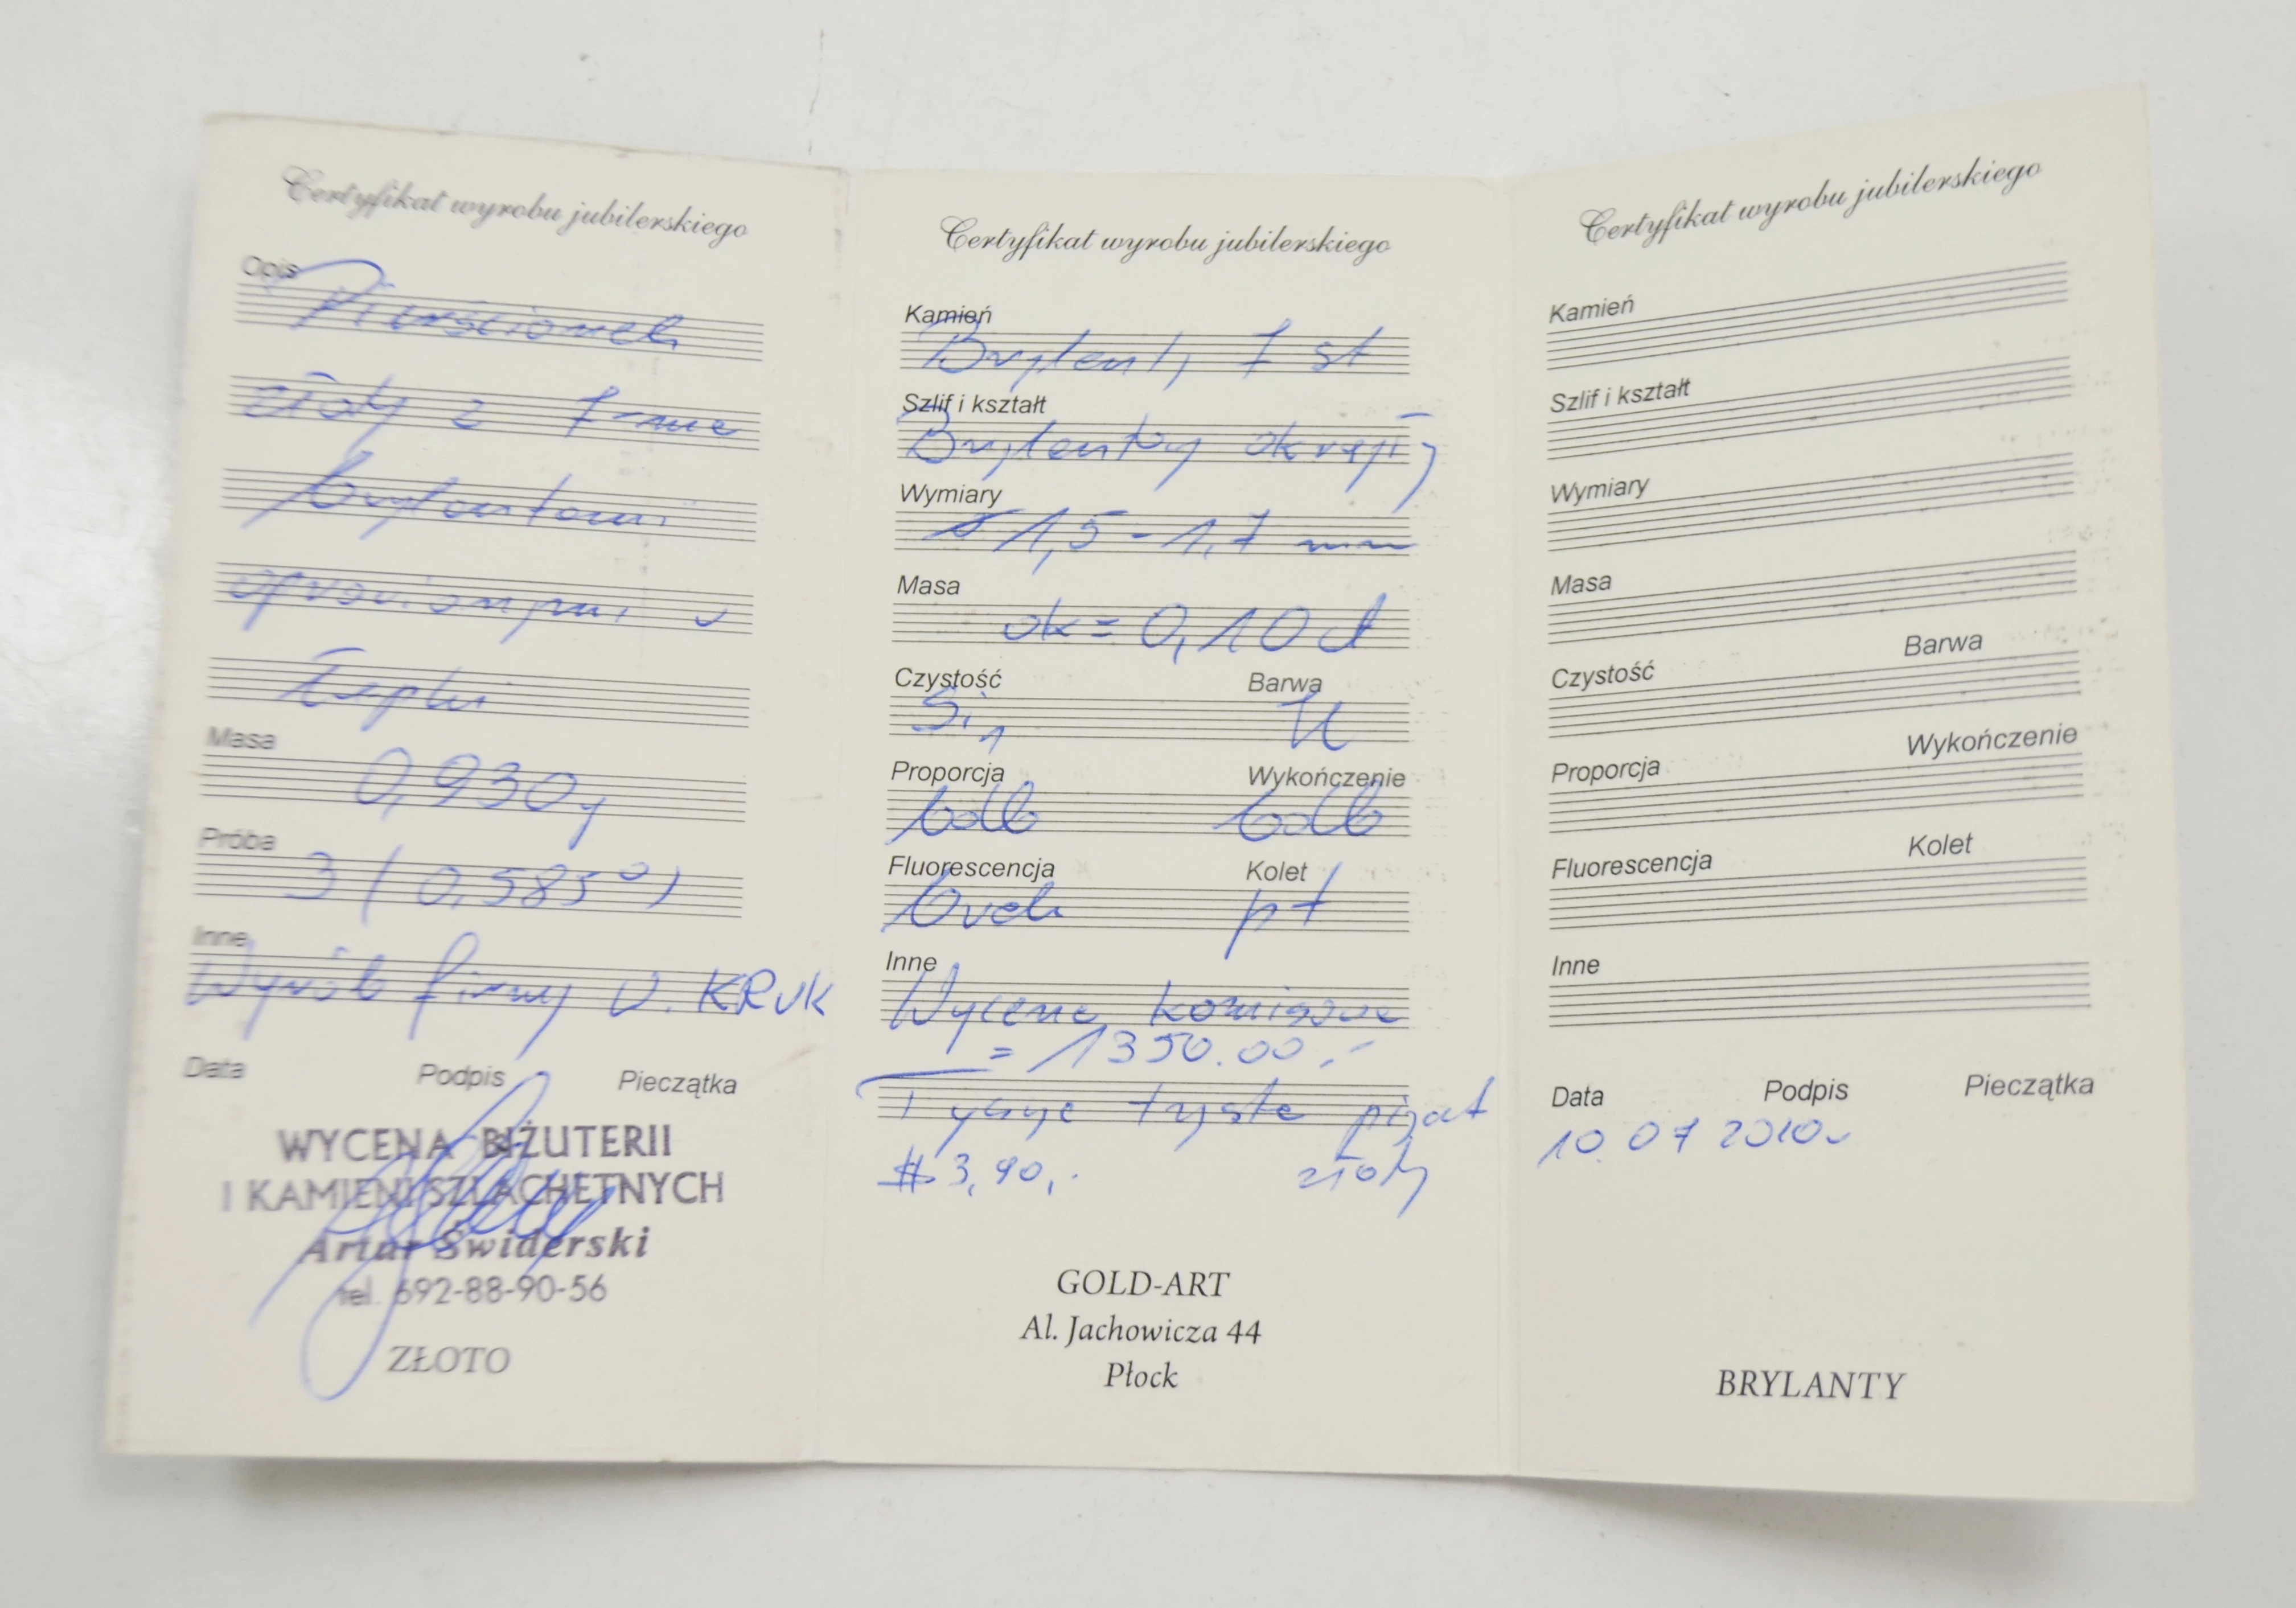 Certyfikat wyrobu jubilerskiego
Opis
Pierścionek
złoty z 7-ma
brylantami
oprawionymi w
łapki
Masa
0,930g
Próba
3 (0,585°)
Inne
Wyrób firmy W. KRUK
Data Podpis Pieczątka
WYCENA BIŻUTERII
I KAMIENI SZLACHETNYCH
Artur Świderski
tel. 692-88-90-56
ZŁOTO
Certyfikat wyrobu jubilerskiego
Kamień
Brylant, 7 szt
Szlif i kształt
Brylantowy okrągły
Wymiary
ø 1,5 - 1,7 mm
Masa
ok = 0,10 ct
Czystość Barwa
Si1 H
Proporcja Wykończenie
bdb bdb
Fluorescencja Kolet
brak pt
Inne
Wycena komisowa
= 1350.00,-
Tysiąc trzysta
złoty
$ 3,90,-
GOLD-ART
Al. Jachowicza 44
Płock
Certyfikat wyrobu jubilerskiego
Kamień
Szlif i kształt
Wymiary
Masa
Czystość Barwa
Proporcja Wykończenie
Fluorescencja Kolet
Inne
Data Podpis Pieczątka
10.07 2010
BRYLANTY